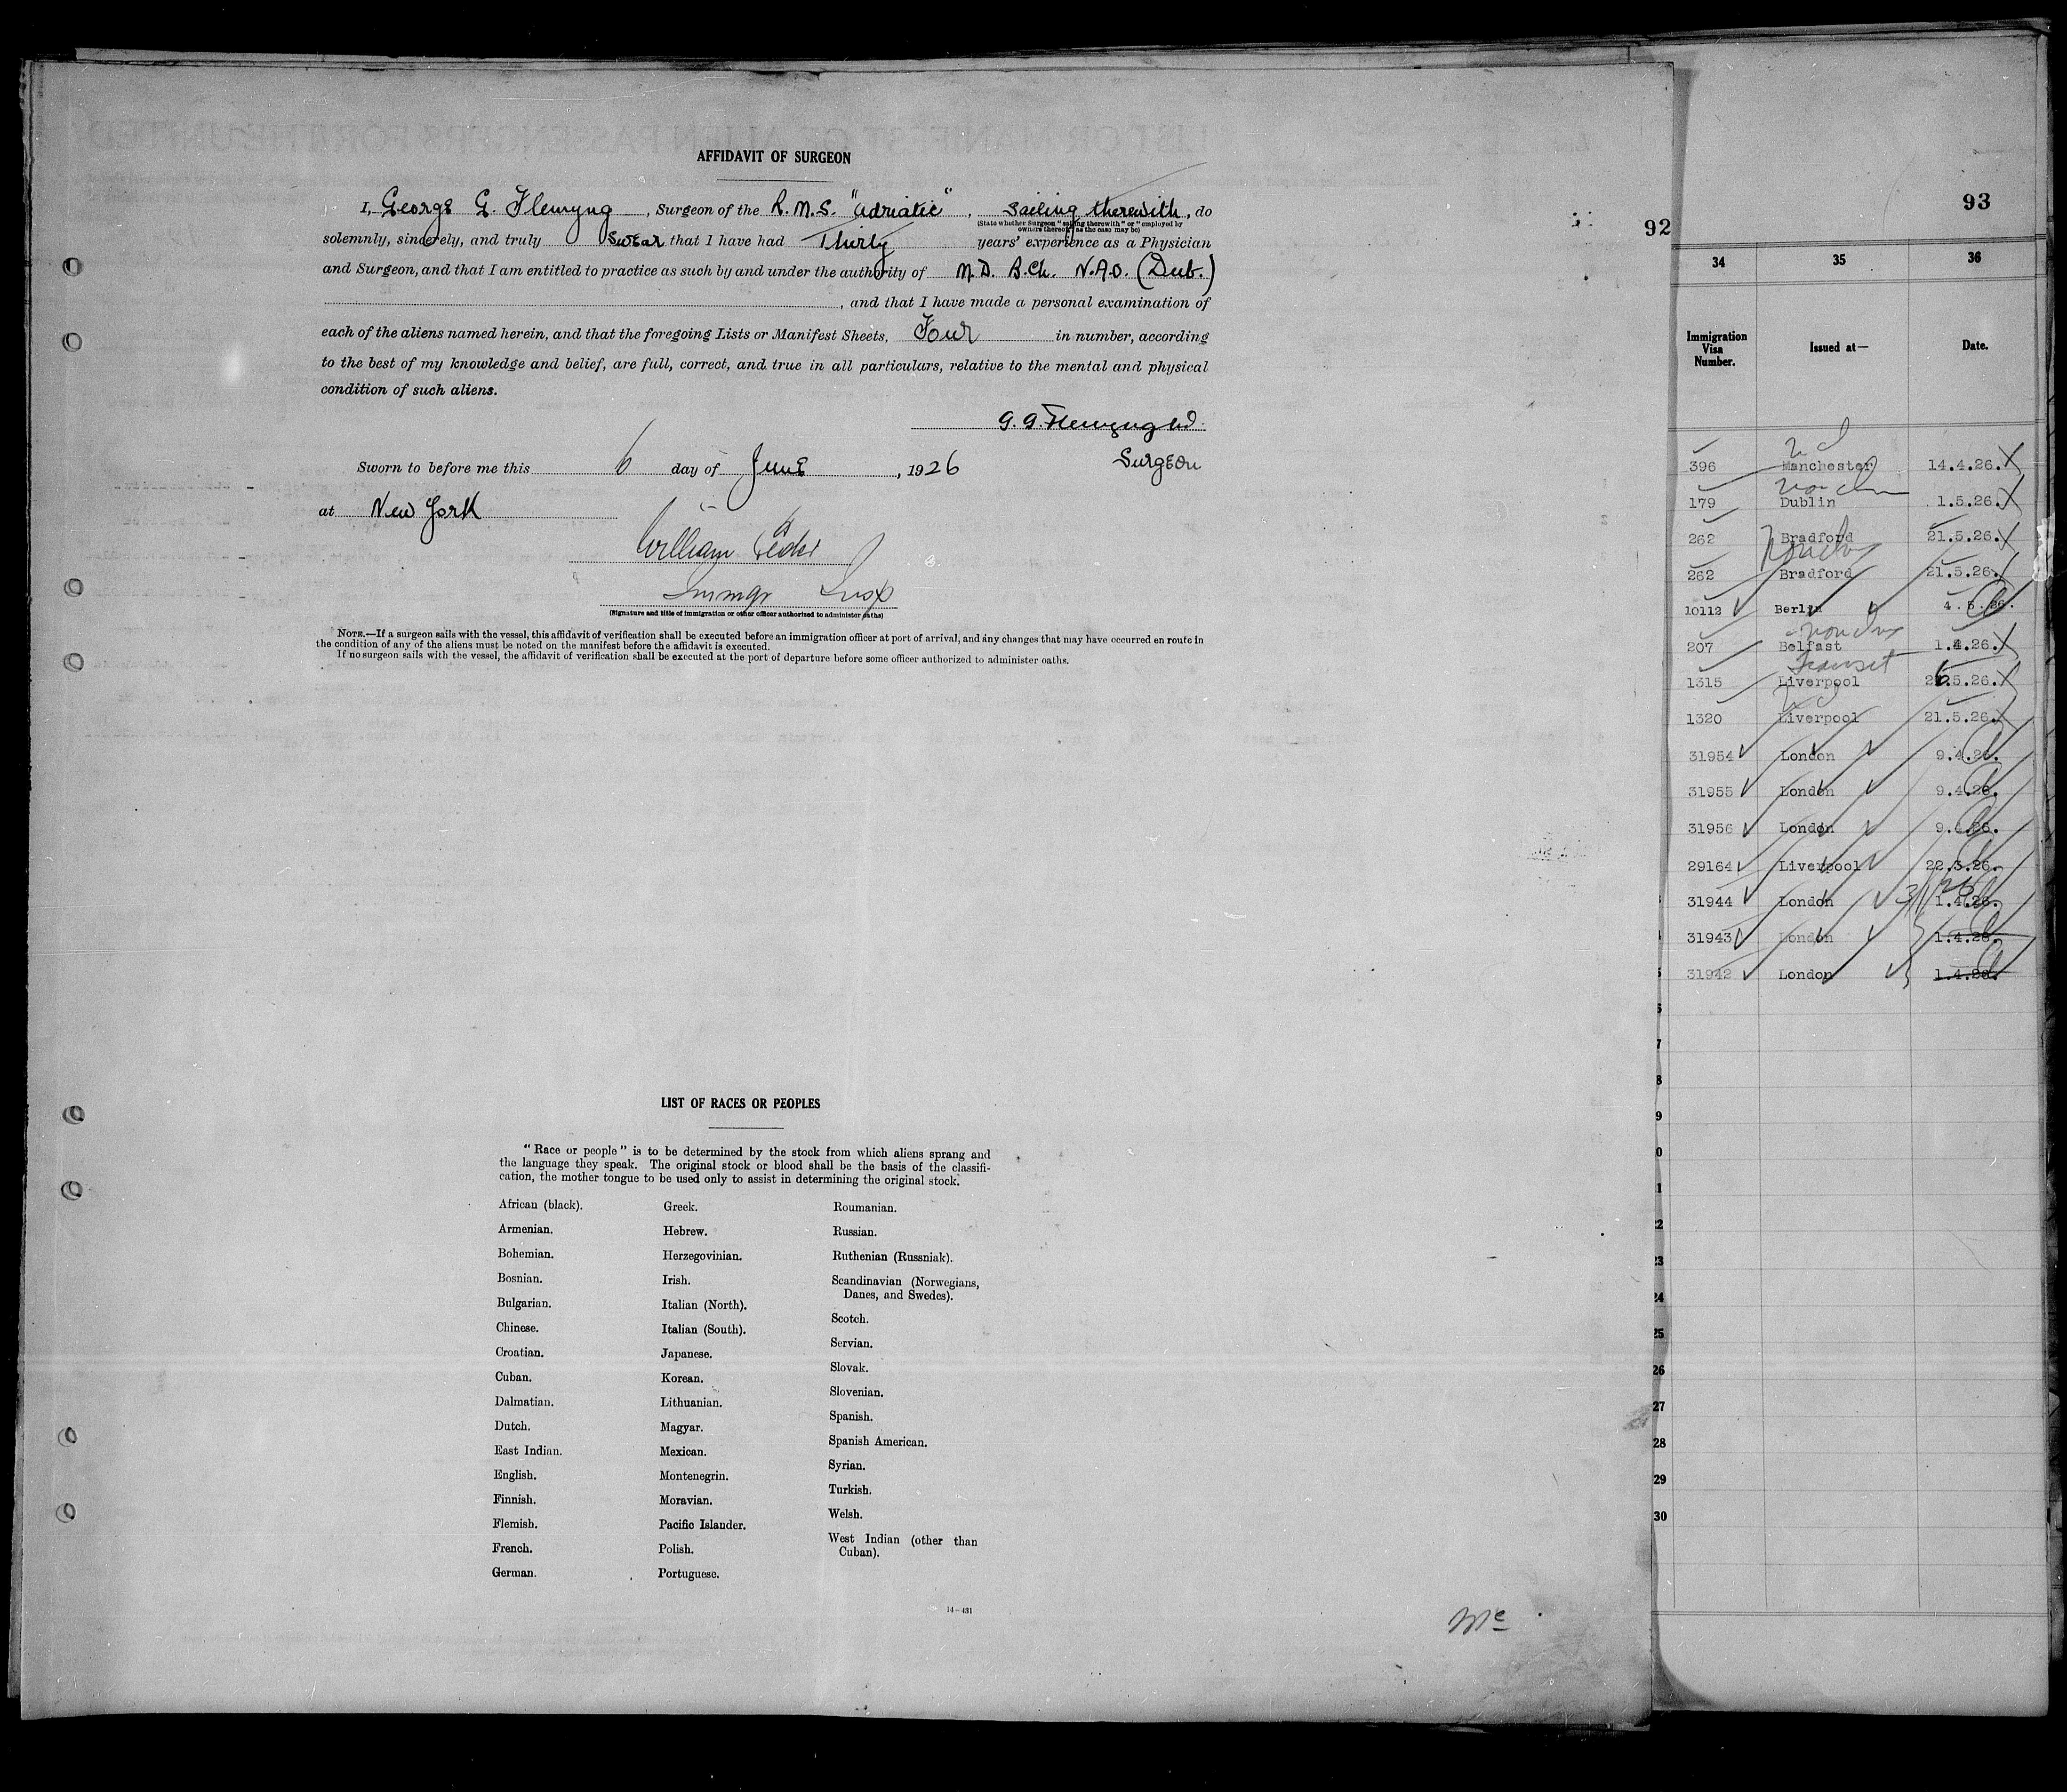 AFFIDAVIT OF SURGEON
I, George G. Flemyng, Surgeon of the R.M.S. "Adriatic", Sailing therewith, do
(State whether Surgeon "sailing therewith" or "employed by
owners thereof," as the case may be)
solemnly, sincerely, and truly swear that I have had Thirty years' experience as a Physician
and Surgeon, and that I am entitled to practice as such by and under the authority of M.D. B.Ch. (Dub.)
, and that I have made a personal examination of
each of the aliens named herein, and that the foregoing Lists or Manifest Sheets, Four in number, according
to the best of my knowledge and belief, are full, correct, and true in all particulars, relative to the mental and physical
condition of such aliens.
G. G. Flemyng
Surgeon
Sworn to before me this 6 day of June, 1926
at New York
William
Immgr Insp
(Signature and title of immigration or other officer authorized to administer oaths)
NOTE.—If a surgeon sails with the vessel, this affidavit of verification shall be executed before an immigration officer at port of arrival, and any changes that may have occurred en route in
the condition of any of the aliens must be noted on the manifest before the affidavit is executed.
If no surgeon sails with the vessel, the affidavit of verification shall be executed at the port of departure before some officer authorized to administer oaths.
LIST OF RACES OR PEOPLES
"Race or people" is to be determined by the stock from which aliens sprang and
the language they speak. The original stock or blood shall be the basis of the classifi-
cation, the mother tongue to be used only to assist in determining the original stock.
African (black).
Armenian.
Bohemian.
Bosnian.
Bulgarian.
Chinese.
Croatian.
Cuban.
Dalmatian.
Dutch.
East Indian.
English.
Finnish.
Flemish.
French.
German.
Greek.
Hebrew.
Herzegovinian.
Irish.
Italian (North).
Italian (South).
Japanese.
Korean.
Lithuanian.
Magyar.
Mexican.
Montenegrin.
Moravian.
Pacific Islander.
Polish.
Portuguese.
Roumanian.
Russian.
Ruthenian (Russniak).
Scandinavian (Norwegians,
Danes, and Swedes).
Scotch.
Servian.
Slovak.
Slovenian.
Spanish.
Spanish American.
Syrian.
Turkish.
Welsh.
West Indian (other than
Cuban).
14—431
92
93
34 35 36
Immigration
Visa
Number.
Issued at—
Date.
396 Manchester 14.4.26.
179 Dublin 1.5.26.
262 Bradford 21.5.26.
262 Bradford 21.5.26.
10112 Berlin 4.5.26.
207 Belfast 1.4.26.
Transit
1315 Liverpool 5.26.
1320 Liverpool 21.5.26.
31954 London 9.4.26.
31955 London 9.4.26.
31956 London 9.4.26.
29164 Liverpool 22.3.26.
31944 London 1.4.26.
31943 London 1.4.26.
31942 London 1.4.26.
25
26
27
28
29
30